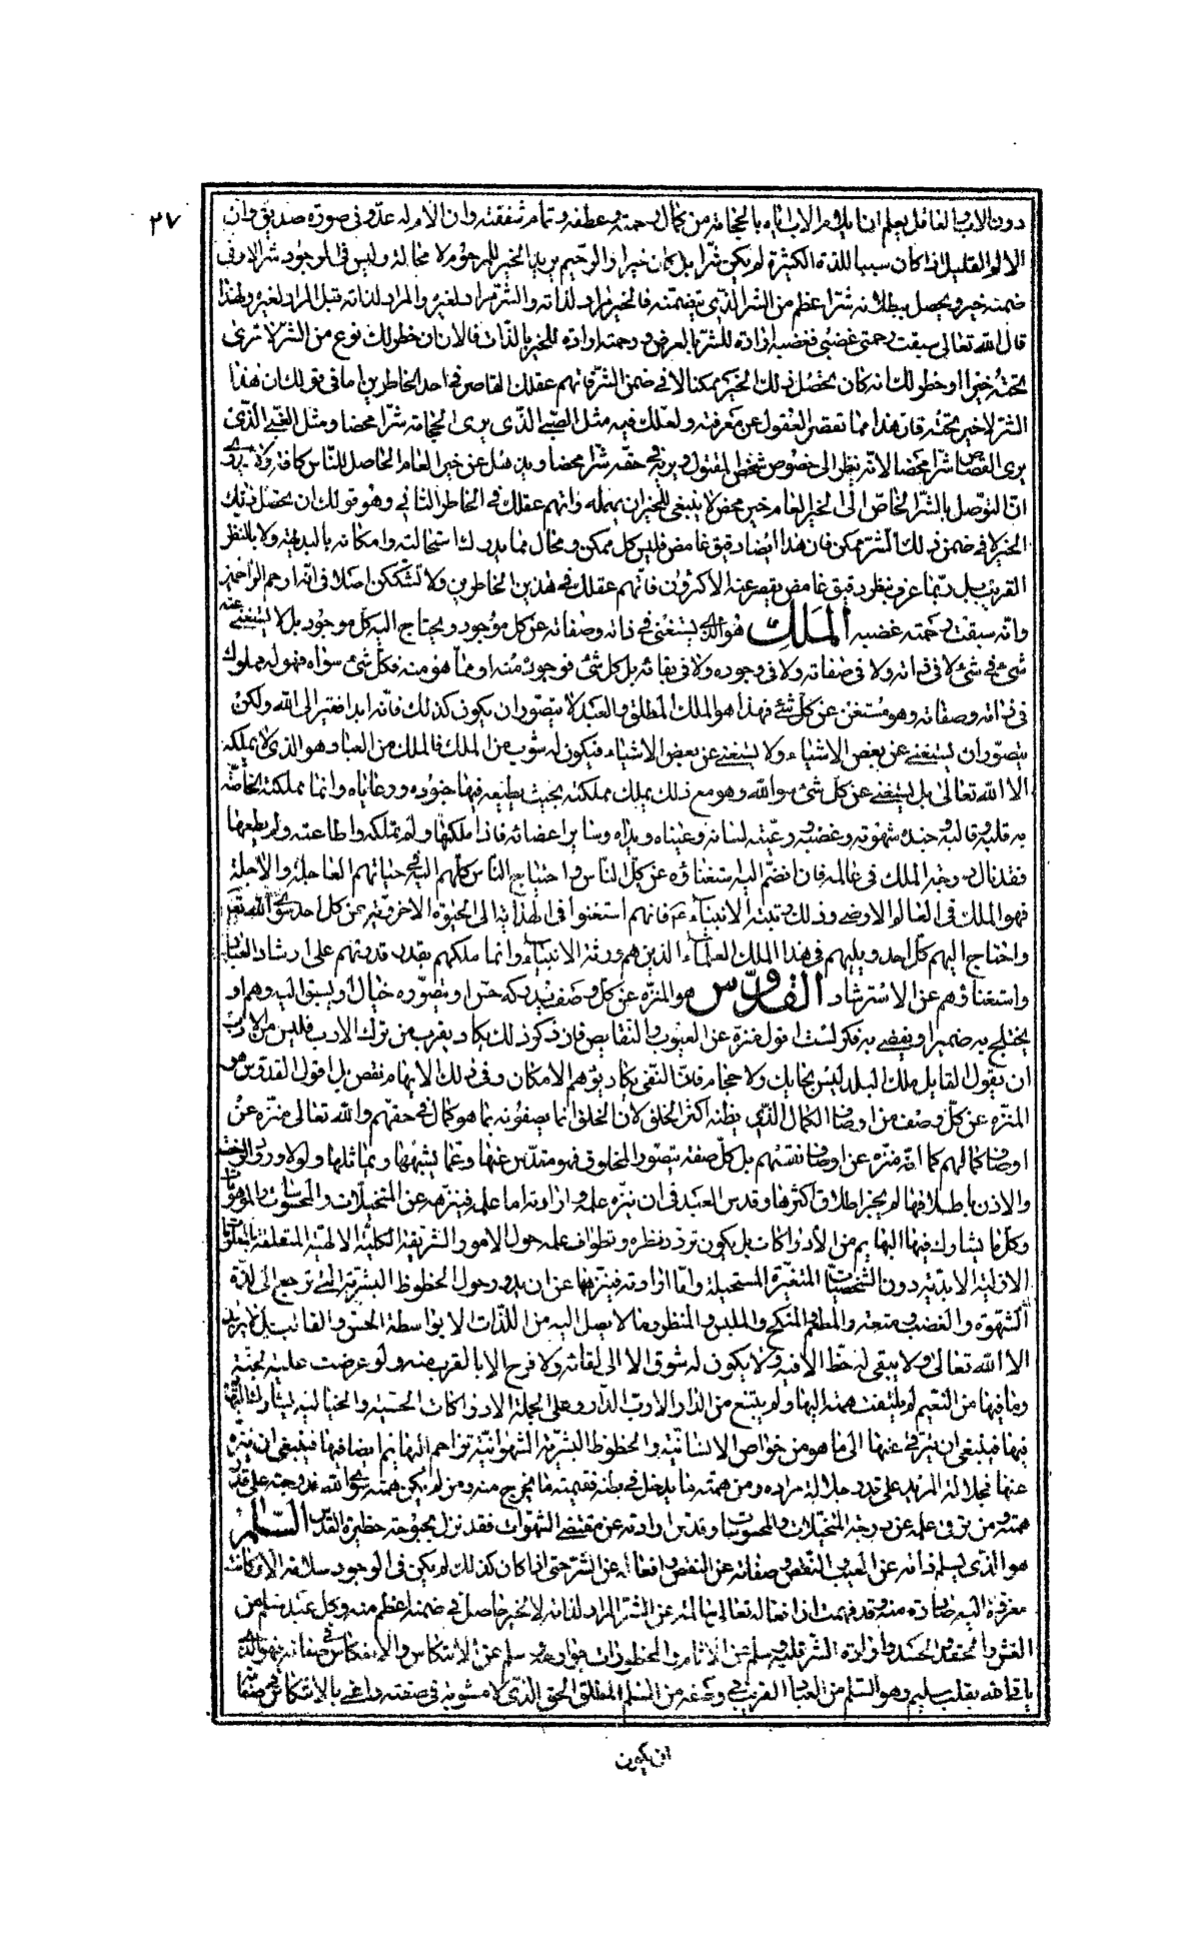 ٣٧
دون الاب والعاقل يعلم ان ايلام الاب اياه بالحجامة من كمال رحمته وعطفه وتمام شفقته وان الام له عدو فى صورة صديق وان
الالم القليل اذا كان سببا للذة الكثيرة لم يكن شرا بل كان خيرا والرحيم يريد الخير للمرحوم لا محالة وليس فى الوجود شر الا وفى
ضمنه خير ويحصل ببطلانه شر اعظم من الشر الذى يتضمنه فالخير مراد لذاته والشر مراد لغيره والمراد لذاته قبل المراد لغيره ولهذا
قال الله تعالى سبقت رحمتى غضبى فغضبه ارادته للشر بالعرض ورحمته ارادته للخير بالذات فالان ان خطر لك نوع من الشر لا ترى
تحته خيرا او خطر لك انه كان تحصل ذلك الخير ممكنا لا فى ضمن الشر فاتهم عقلك القاصر فى احد الخاطرين اما فى قولك ان هذا
الشر لا خير تحته فان هذا مما تقصر العقول عن معرفته ولعلك فيه مثل الصبى الذى يرى الحجامة شرا محضا ومثل الغبى الذى
يرى القصاص شرا محضا لانه ينظر الى خصوص شخص المقتول ويرى فى حقه شرا محضا ويذهل عن خير العام الحاصل للناس كافة ولا يدرى
ان التوصل بالشر الخاص الى الخير العام خير محض لا ينبغى للخير ان يهمله واتهم عقلك فى الخاطر الثانى وهو قولك ان تحصل ذلك
الخير لا فى ضمن ذلك الشر ممكن فان هذا ايضا دقيق غامض فليس كل ممكن ومحال مما يدرك استحالته وامكانه بالبديهة ولا بالنظر
القريب بل ربما عرف بنظر دقيق غامض يقصر عنه الاكثرون فاتهم عقلك فى هذين الخاطرين ولا تشككن اصلا فى انه ارحم الراحمين
وانه سبقت رحمته غضبه الملك هو الذى يستغنى فى ذاته وصفاته عن كل موجود ويحتاج اليه كل موجود بل لا يستغنى عنه
شئ فى شئ لا فى ذاته ولا فى صفاته ولا فى وجوده ولا فى بقائه بل كل شئ فوجوده منه او مما هو منه فكل شئ سواه فهو له مملوك
فى ذاته وصفاته وهو مستغن عن كل شئ فهذا هو الملك المطلق والعبد لا يتصور ان يكون كذلك فانه ابدا فقير الى الله ولكن
يتصور ان يستغنى عن بعض الاشياء ولا يستغنى عن بعض الاشياء فيكون له شوب من الملك فالملك من العباد هو الذى لا يملكه
الا الله تعالى بل يستغنى عن كل شئ سوى الله وهو مع ذلك يملك مملكته بحيث يطيعه فيها جنوده ورعاياه وانما مملكته الخاصة
به قلبه وقالبه وجنده شهوته وغضبه ورعيته لسانه وعيناه ويداه وساير اعضائه فاذا ملكها ولم تملكه واطاعته ولم يطعها
فقد نال درجة الملك فى عالمه فان انضم اليه استغناؤه عن كل الناس واحتياج الناس كلهم اليه فى حياتهم العاجلة والاجلة
فهو الملك فى العالم الارضى وذلك رتبة الانبياء ع م فانهم استغنوا فى الهداية الى الحيوة الاخروية عن كل احد سوى الله تعالى
واحتاج اليهم كل احد ويليهم فى هذا الملك العلماء الذين هم ورثة الانبياء وانما ملكهم بقدر قدرتهم على ارشاد العباد
واستغنائهم عن الاسترشاد القدوس هو المنزه عن كل وصف يدركه حس او يتصوره خيال او يسبق اليه وهم او
يختلج به ضمير او يفضى به فكر لست اقول منزه عن العيوب والنقايص فان ذكر ذلك يكاد يقرب من ترك الادب فليس من الادب
ان يقول القايل ملك البلد ليس بحايك ولا حجام فان النفى يكاد يوهم الامكان وفى ذلك الايهام نقص بل اقول القدوس هو
المنزه عن كل وصف من اوصاف الكمال الذى يظنه اكثر الخلق لان الخلق انما يصفونه بما هو كمال فى حقهم والله تعالى منزه عن
اوصاف كمالهم كما انه منزه عن اوصاف نقصهم بل كل صفة تتصور للمخلوق فهو مقدس عنها وعما يشبهها ويماثلها ولولا ورود الرخصة
والاذن باطلاقها لم يجز اطلاق اكثرها وقدس العبد فى ان ينزه علمه وارادته اما علمه فينزهه عن المتخيلات والمحسوسات والموهومات
وكل ما يشارك فيها البهايم من الادراكات بل يكون تردد نظره وتطواف علمه حول الامور الشريفة الكلية الالهية المتعلقة بالمعلومات
الازلية الابدية دون الشخصيات المتغيرة المستحيلة واما ارادته فينزهها عن ان يدور حول الحظوظ البشرية التى ترجع الى لذة
الشهوة والغضب ومتعة والمطعم والمنكح والملبس والمنظر وما لا يصل اليه من اللذات الا بواسطة الحس والقالب بل لا يريد
الا الله تعالى ولا يبقى له حظ الا فيه ولا يكون له شوق الا الى لقائه ولا فرح الا بالقرب منه ولو عرضت عليه الجنة
وما فيها من النعيم لم يلتفت همته اليها ولم يقنع من الدار الا برب الدار وعلى الجملة الادراكات الحسية والخيالية يشارك البهايم
فيها فينبغى ان يترقى عنها الى ما هو من خواص الانسانية والحظوظ البشرية الشهوانية تزاحم البهايم ايضا فيها فينبغى ان يتنزه
عنها فجلالة المريد على قدر جلالة مراده ومن همته ما يدخل فى بطنه فقيمته ما يخرج منه ومن لم يكن همته سوى الله فدرجته على قدر
همته ومن ترقى علمه عن درجة المتخيلات والمحسوسات وقدس ارادته عن مقتضى الشهوات فقد نزل بحبوحة حظيرة القدس السلام
هو الذى يسلم ذاته عن العيب والنقص وصفاته عن النقص وافعاله عن الشر حتى اذا كان كذلك لم يكن فى الوجود سلامة الا وكانت
معزية اليه صادرة منه وقد فهمت ان افعاله تعالى سالمة عن الشر المراد لذاته لا لخير حاصل فى ضمنه اعظم منه وكل عبد سلم من
الغش والحقد والحسد وارادة الشر قلبه وسلم عن الاثام والمحظورات جوارحه وسلم عن الانتكاس والانعكاس فى صفاته فهو الذى
ياتى الله بقلب سليم وهو السلم من العباد القريب فى وصفه من السلم المطلق الحق الذى لا مشوبة فى صفته واعنى بالانتكاس فى صفاته
ان يكون